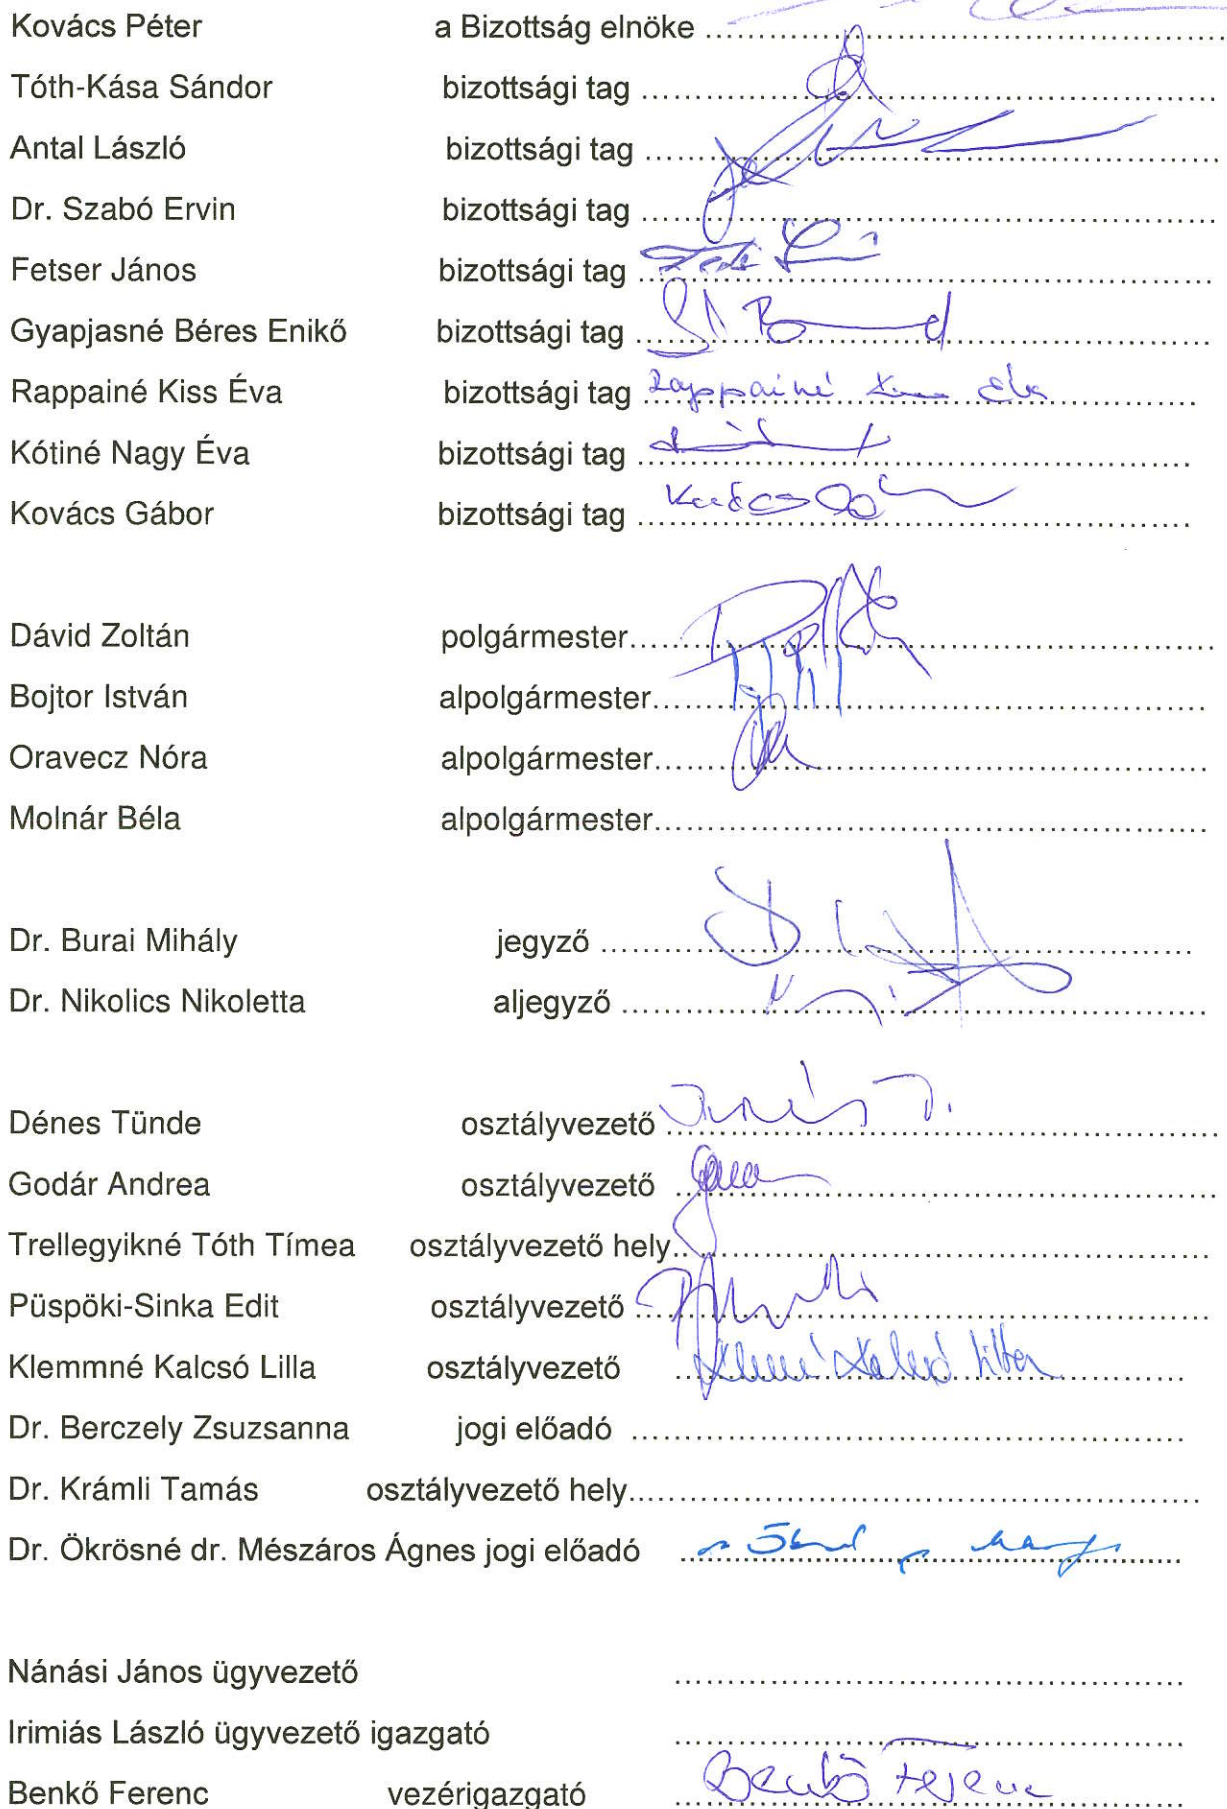 Kovács Péter a Bizottság elnöke ........................................
Tóth-Kása Sándor bizottsági tag ........................................
Antal László bizottsági tag ........................................
Dr. Szabó Ervin bizottsági tag ........................................
Fetser János bizottsági tag ........................................
Gyapjasné Béres Enikő bizottsági tag ........................................
Rappainé Kiss Éva bizottsági tag Rappainé Kiss Éva
Kótiné Nagy Éva bizottsági tag ........................................
Kovács Gábor bizottsági tag Kovács
Dávid Zoltán polgármester........................................
Bojtor István alpolgármester........................................
Oravecz Nóra alpolgármester........................................
Molnár Béla alpolgármester........................................
Dr. Burai Mihály jegyző ........................................
Dr. Nikolics Nikoletta aljegyző ........................................
Dénes Tünde osztályvezető ........................................
Godár Andrea osztályvezető ........................................
Trellegyikné Tóth Tímea osztályvezető hely........................................
Püspöki-Sinka Edit osztályvezető ........................................
Klemmné Kalcsó Lilla osztályvezető ........................................
Dr. Berczely Zsuzsanna jogi előadó ........................................
Dr. Krámli Tamás osztályvezető hely........................................
Dr. Ökrösné dr. Mészáros Ágnes jogi előadó ........................................
Nánási János ügyvezető ........................................
Irimiás László ügyvezető igazgató ........................................
Benkő Ferenc vezérigazgató Benkő Ferenc